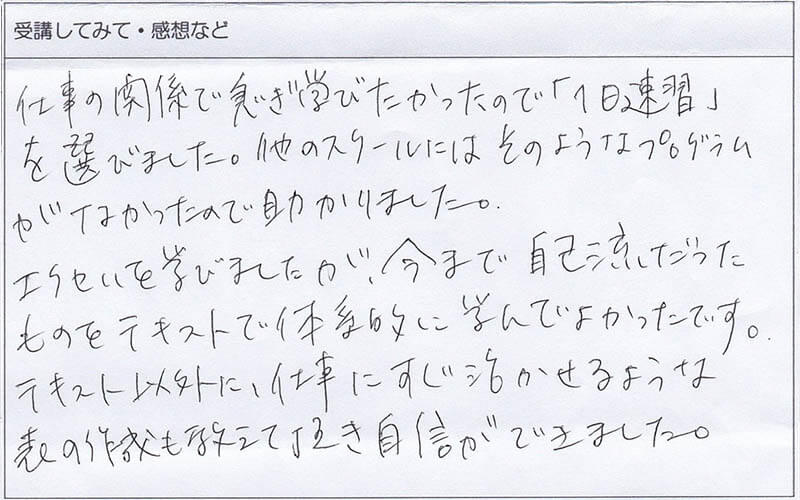 受講してみて・感想など
仕事の関係で急ぎ学びたかったので「1日速習」
を選びました。他のスクールにはそのようなプログラム
がなかったので助かりました。
エクセルを学びましたが、今まで自己流だった
ものをテキストで体系的に学んでよかったです。
テキスト以外に、仕事にすぐ活かせるような
表の作成も教えて頂き自信ができました。